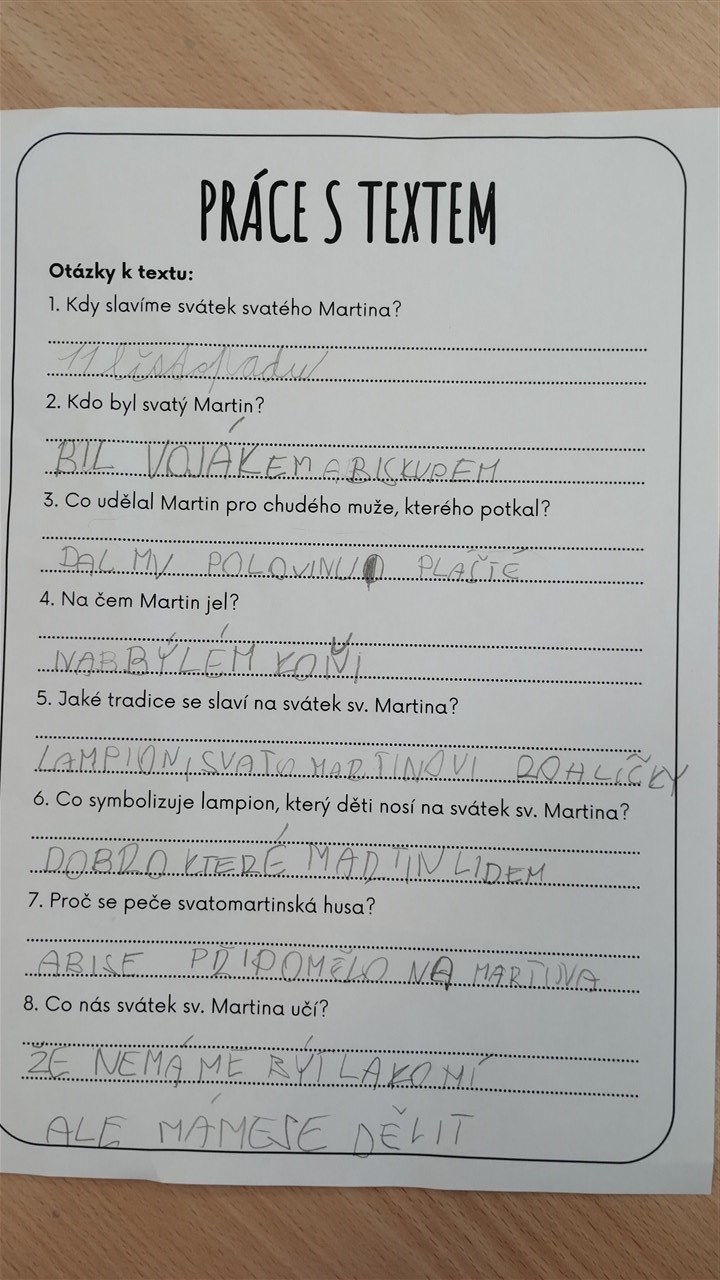 PRÁCE S TEXTEM
Otázky k textu:
1. Kdy slavíme svátek svatého Martina?
11 listopadu
2. Kdo byl svatý Martin?
BIL VOJÁKEM A BISKUPEM
3. Co udělal Martin pro chudého muže, kterého potkal?
DAL MU POLOVINU PLÁŠTĚ
4. Na čem Martin jel?
NA BÝLÉM KOŇI
5. Jaké tradice se slaví na svátek sv. Martina?
LAMPION, SVATO MARTINOVI ROHLÍČKY
6. Co symbolizuje lampion, který děti nosí na svátek sv. Martina?
DOBRO KTERÉ MARTIN LIDEM
7. Proč se peče svatomartinská husa?
ABISE PŘIPOMĚLO NA MARTINA
8. Co nás svátek sv. Martina učí?
ŽE NEMÁME BÝT LAKOMÍ
ALE MÁMESE DĚLIT